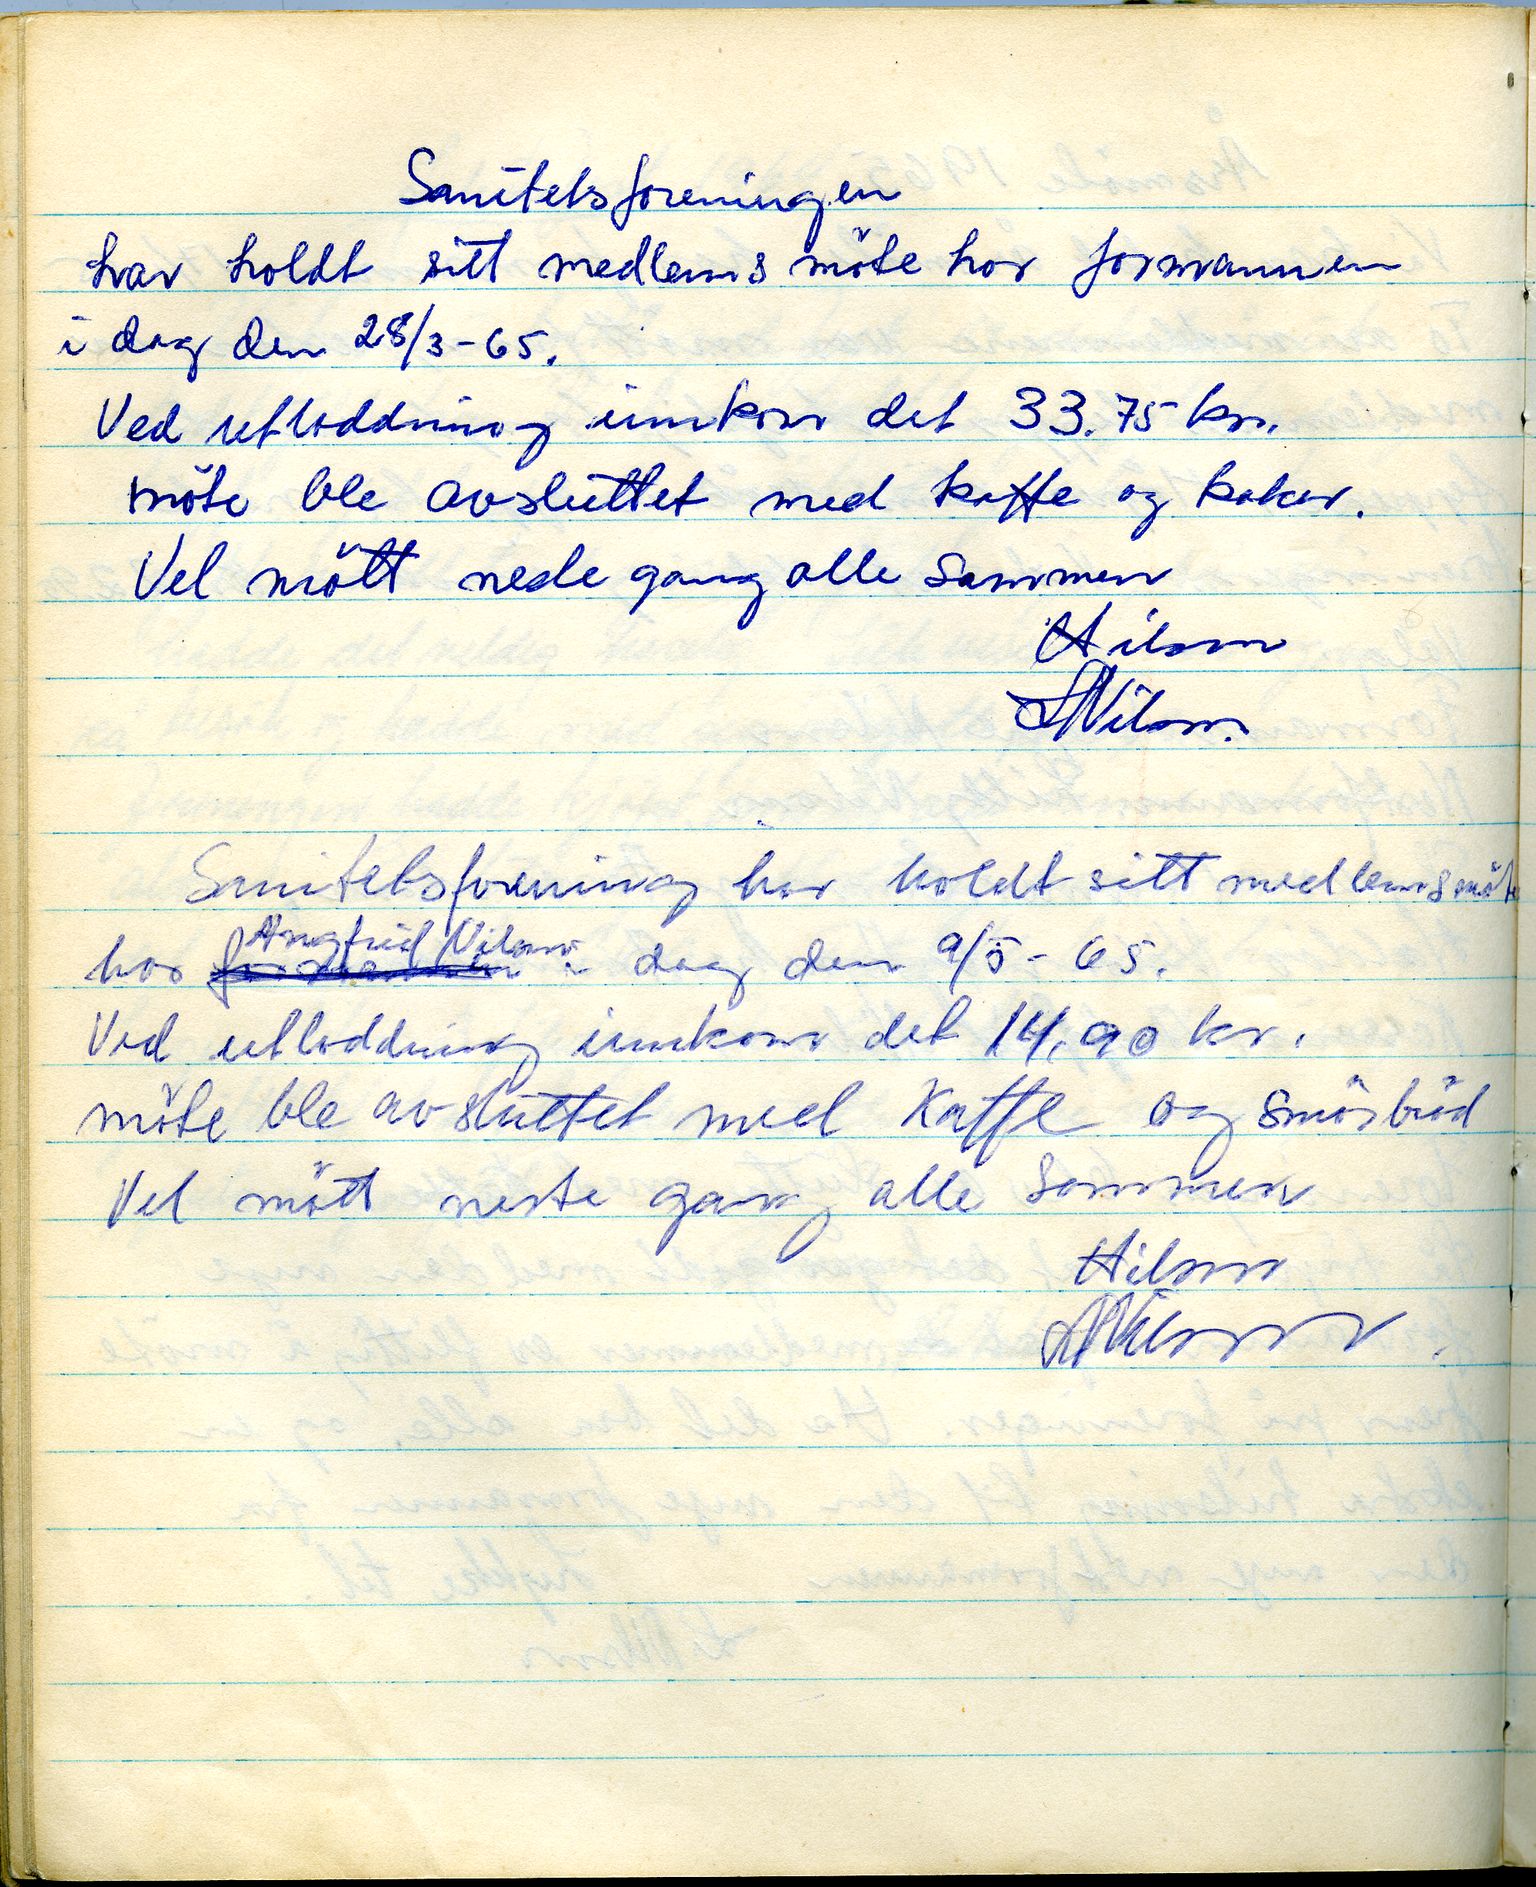 Sanitetsforeningen
har holdt sitt medlems möte hos formannen
i dag den 28/3-65.
Ved utloddning innkom det 33.75 kr.
möte ble avsluttet med kaffe og kaker.
Vel mött nede gang alle sammen
Hilsen
LNilsen.
Sanitetsforening har holdt sitt medlemsmöte
hos formannen Angfrid Nilsen i dag den 9/5-65.
Ved utloddning innkom det 14.90 kr.
möte ble avsluttet med Kaffe og smörbröd
Vel mött neste gang alle sammen
Hilsen
LNilsen